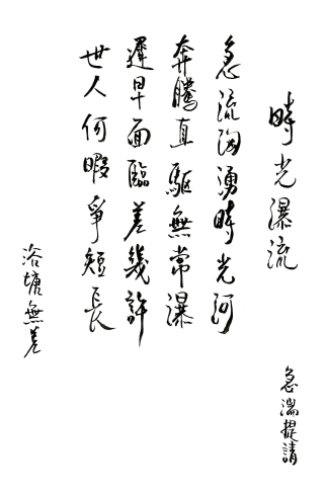 時光瀑流
急湍提請
急流洶湧時光河
奔騰直驅無常瀑
遲早面臨差幾許
世人何暇爭短長
浴塘無差